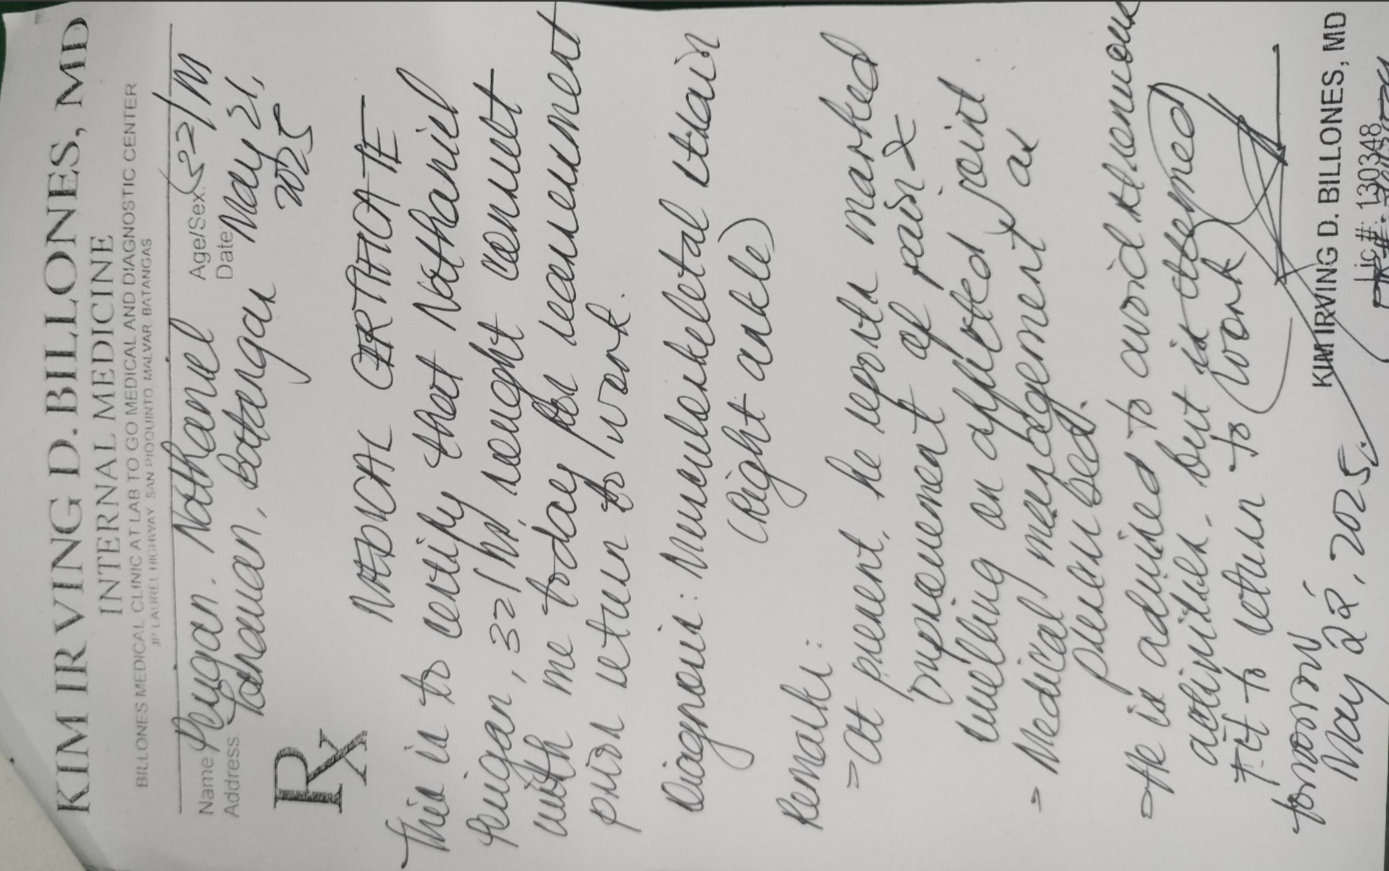 KIM IRVING D. BILLONES, MD
INTERNAL MEDICINE
BILLONES MEDICAL CLINIC AT LAB TO GO MEDICAL AND DIAGNOSTIC CENTER
JP LAUREL HIGHWAY, SAN PIOQUINTO MALVAR BATANGAS
Name Nathaniel Age/Sex: 32/M
Address Batangas Date: May 21,
2025
Rx
MEDICAL CERTIFICATE
This is to certify that Nathaniel
, 32/M, sought consult
with me today for reassessment
prior return to work.
Diagnosis: Musculoskeletal strain
(Right ankle)
Remarks:
- At present, he reports marked
improvement of pain &
swelling on affected joint.
- Medical management as
prescribed.
- He is advised to avoid strenuous
activities, but is deemed
FIT to return to work
tomorrow
May 22, 2025.
KIM IRVING D. BILLONES, MD
Lic#: 130348